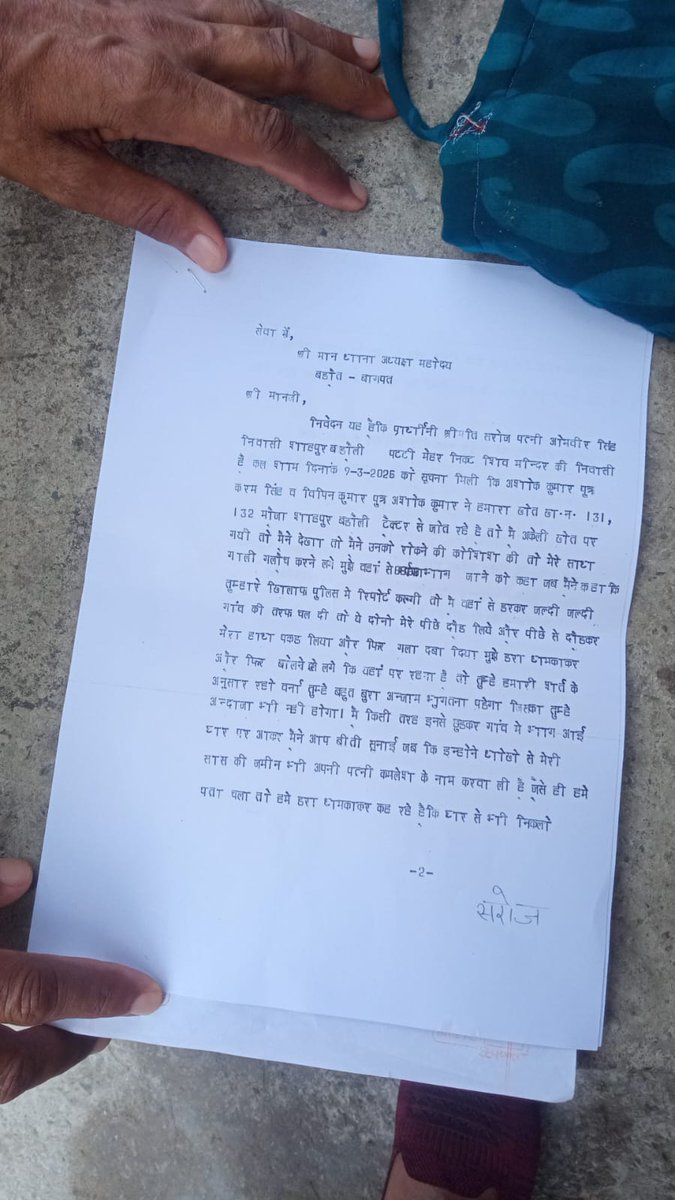 सेवा में,
श्री मान थाना अध्यक्ष महोदय
बडौत - बागपत
श्री मानजी,
निवेदन यह हैकि प्रार्थीनी श्रीमति सरोज पत्नी ओमवीर सिंह
निवासी शाहपुर बडोली पटटी मेहर निकट शिव मन्दिर की निवासी
है कल शाम दिनांक 9-3-2026 को सूचना मिली कि अशोक कुमार पुत्र
करम सिंह व विपिन कुमार पुत्र अशोक कुमार ने हमारा खेत खा.न. 131,
132 मोजा शाहपुर बडोली टैक्टर से जोत रहे है तो मै अकेली खेत पर
गयी तो मैने देखा तो मैने उनको रोकने की कोशिश की तो मेरे साथ
गाली गलोच करने लगे मुझे वहां से भाग जाने को कहा जब मैने कहा कि
तुम्हारे खिलाफ पुलिस मे रिपोर्ट करूगी तो मै वहां से डरकर जल्दी जल्दी
गांव की तरफ चल दी तो ये दोनो मेरे पीछे दौड लिये और पीछे से दौडकर
मेरा हाथ पकड लिया और फिर गला दबा दिया मुझे डरा धामकाकर
और फिर बोलने लगे कि यहां पर रहना है तो तुम्हे हमारी शर्त के
अनुसार रहो वर्ना तुम्हे बहुत बुरा अन्जाम भुगतना पडेगा जिसका तुम्हे
अन्दाजा भी नही होगा। मै किसी तरह इनसे छुडकर गांव मे भाग आई
घार पर आकर मैने आप बीती सुनाई जब कि इन्होने धोखे से मेरी
सास की जमीन भी अपनी पत्नी कमलेश के नाम करवा ली है जैसे ही हमे
पता चला तो हमे डरा धामकाकर कह रहे हैकि घार से भी निकलो
-2-
सरोज